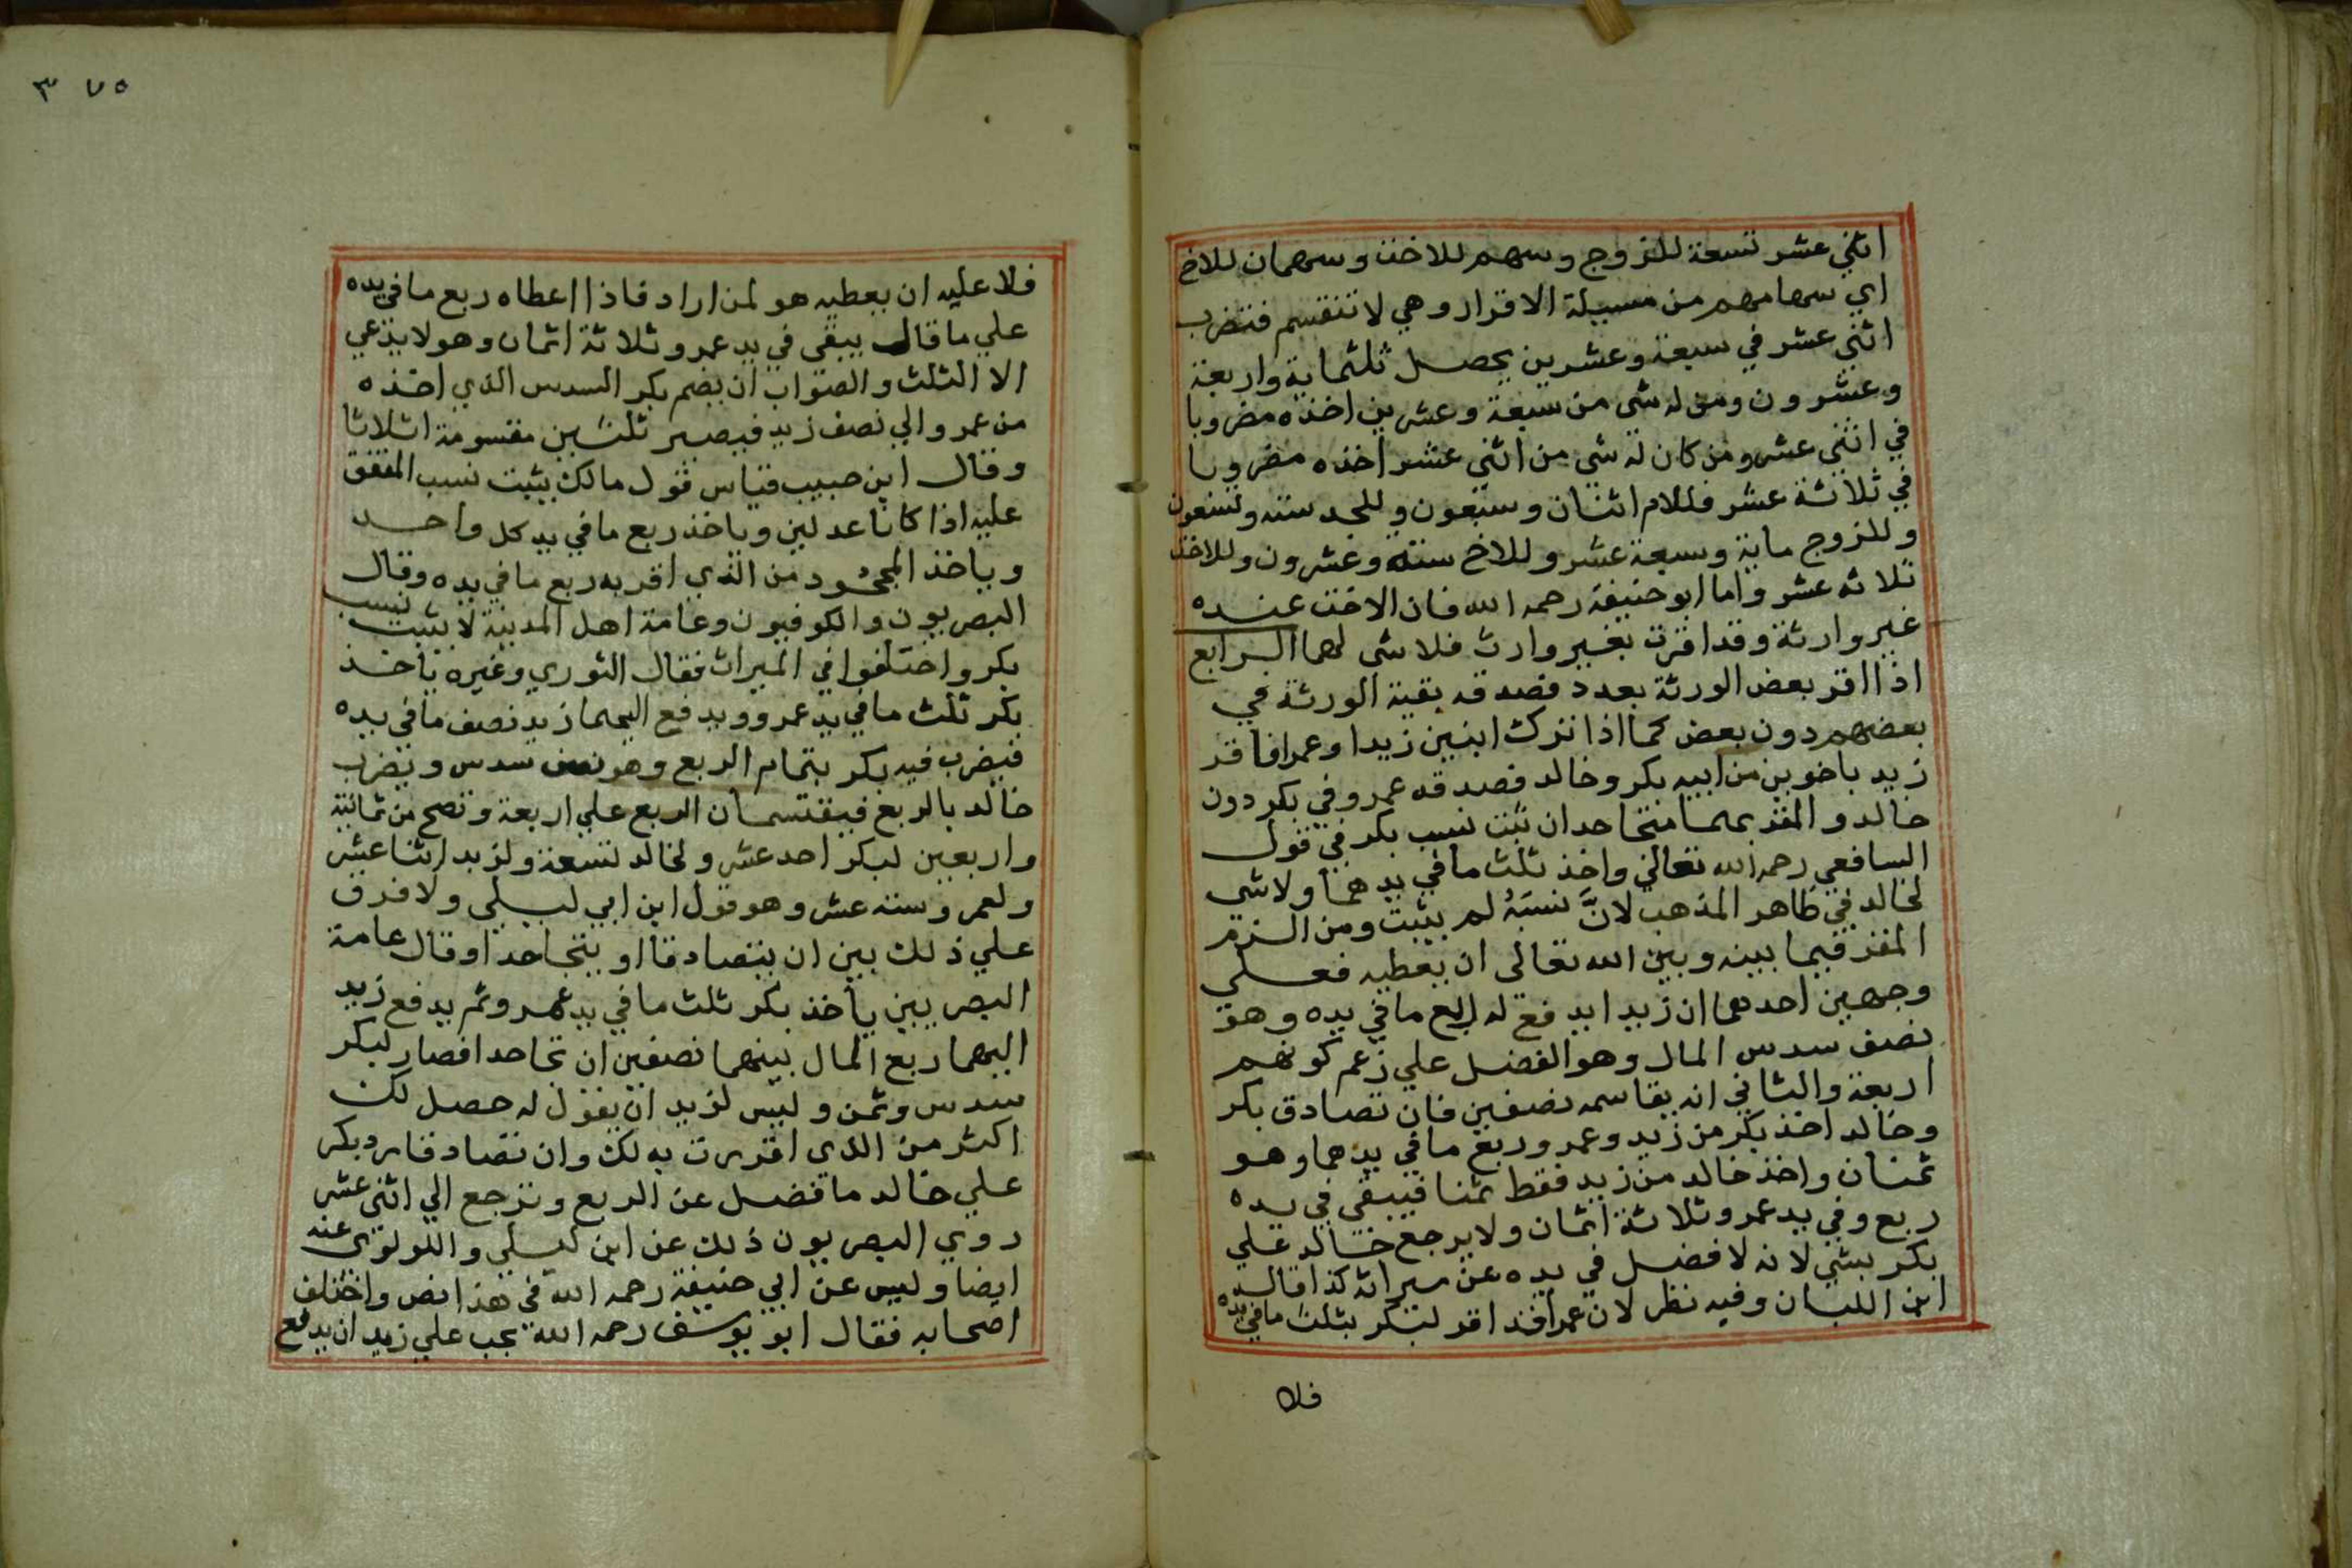 اثني عشر تسعة للزوج وسهم للاخت وسهمان للاخ
اي سهامهم من مسيلة الاقرار وهي لا تنقسم فتضرب
اثني عشر في سبعة وعشرين يحصل ثلثماية واربعة
وعشرون ومن له شي من سبعة وعشرين اخذه مضروبا
في اثني عشر ومن كان له شي من اثني عشر اخذه مضروبا
في ثلاثة عشر فللام اثنان وسبعون وللجد ستة وتسعون
وللزوج ماية وسبعة عشر وللاخ ستة وعشرون وللاخت
ثلاثه عشر واما ابو حنيفة رحمه الله فان الاخت عنده
غير وارثة وقد اقرت بغير وارث فلا شي لهما الرابع
اذا اقر بعض الورثة بعدد فصدقه بقية الورثة في
بعضهم دون بعض كما اذا ترك ابنين زيدا وعمرا فاقر
زيد باخوين من ابيه بكر وخالد فصدقه عمرو في بكر دون
خالد والمقر بهما متجاحدان ثبت نسب بكر في قول
السافعي رحمه الله تعالي واخذ ثلث ما في يدهما ولا شي
لخالد في ظاهر المذهب لانَّ نسَبَهُ لم يثبت ومن الزم
المقر فيما بينه وبين الله تعالى ان يعطيه فعلي
وجهين احدهما ان زيدا يدفع له ربع ما في يده وهو
نصف سدس المال وهو الفضل علي زعم كونهم
اربعة والثاني انه يقاسمه نصفين فان تصادق بكر
وخالد اخذ بكر من زيد وعمرو ربع ما في يدهما وهو
ثمنان واخذ خالد من زيد فقط ثمنا فيبقى في يده
ربع وفي يد عمرو ثلاثة اثمان ولا يرجع خالد علي
بكر بشي لانه لا فضل في يده عن ميراثه كذا قاله
ابن اللبان وفيه نظر لان عمرا قد اقر لبكر بثلث ما في يده
فلا
٣٧٥
فلا عليه ان يعطيه هو لمن اراد فاذا اعطاه ربع ما في يده
علي ما قال يبقى في يد عمرو ثلاثة اثمان وهو لا يدعي
الا الثلث والصواب ان يضم بكر السدس الذي اخذه
من عمرو الي نصف زيد فيصير ثلثين مقسومة اثلاثا
وقال ابن حبيب قياس قول مالك يثبت نسب المتفق
عليه اذا كانا عدلين وياخذ ربع ما في يد كل واحد
وياخذ المجحود من الذي اقر به ربع ما في يده وقال
البصريون والكوفيون وعامة اهل المدينة لا يثبت نسب
بكر واختلفوا في الميراث فقال الثوري وغيره ياخذ
بكر ثلث ما في يد عمرو ويدفع اليهما زيد نصف ما في يده
فيضرب فيه بكر بتمام الربع وهو نصف سدس ويضرب
خالد بالربع فيقتسمان الربع علي اربعة وتصح من ثمانية
واربعين لبكر احد عشر ولخالد تسعة ولزيد اثنا عشر
ولعمرو ستة عشر وهو قول ابن ابي ليلي ولا فرق
علي ذلك بين ان يتصادقا او يتجاحدا وقال عامة
البصريين ياخذ بكر ثلث ما في يد عمرو ثم يدفع زيد
اليهما ربع المال بينهما نصفين ان تجاحدا فصار لبكر
سدس وثمن وليس لزيد ان يقول له حصل لك
اكثر من الذي اقررت به لك وان تصادقا رد بكر
علي خالد ما فضل عن الربع وترجع الي اثني عشر
روي البصريون ذلك عن ابن ليلي واللولوي عنه
ايضا وليس عن ابي حنيفة رحمه الله في هذا نص واختلف
اصحابه فقال ابو يوسف رحمه الله يجب علي زيد ان يدفع